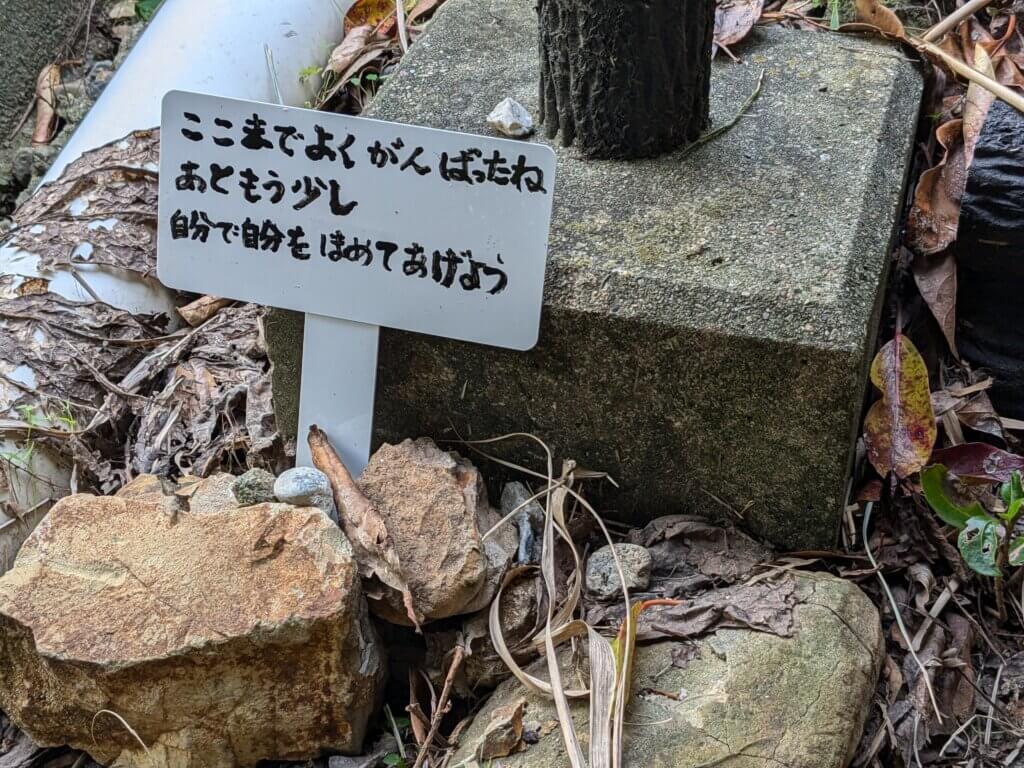 ここまでよくがんばったね
あともう少し
自分で自分をほめてあげよう